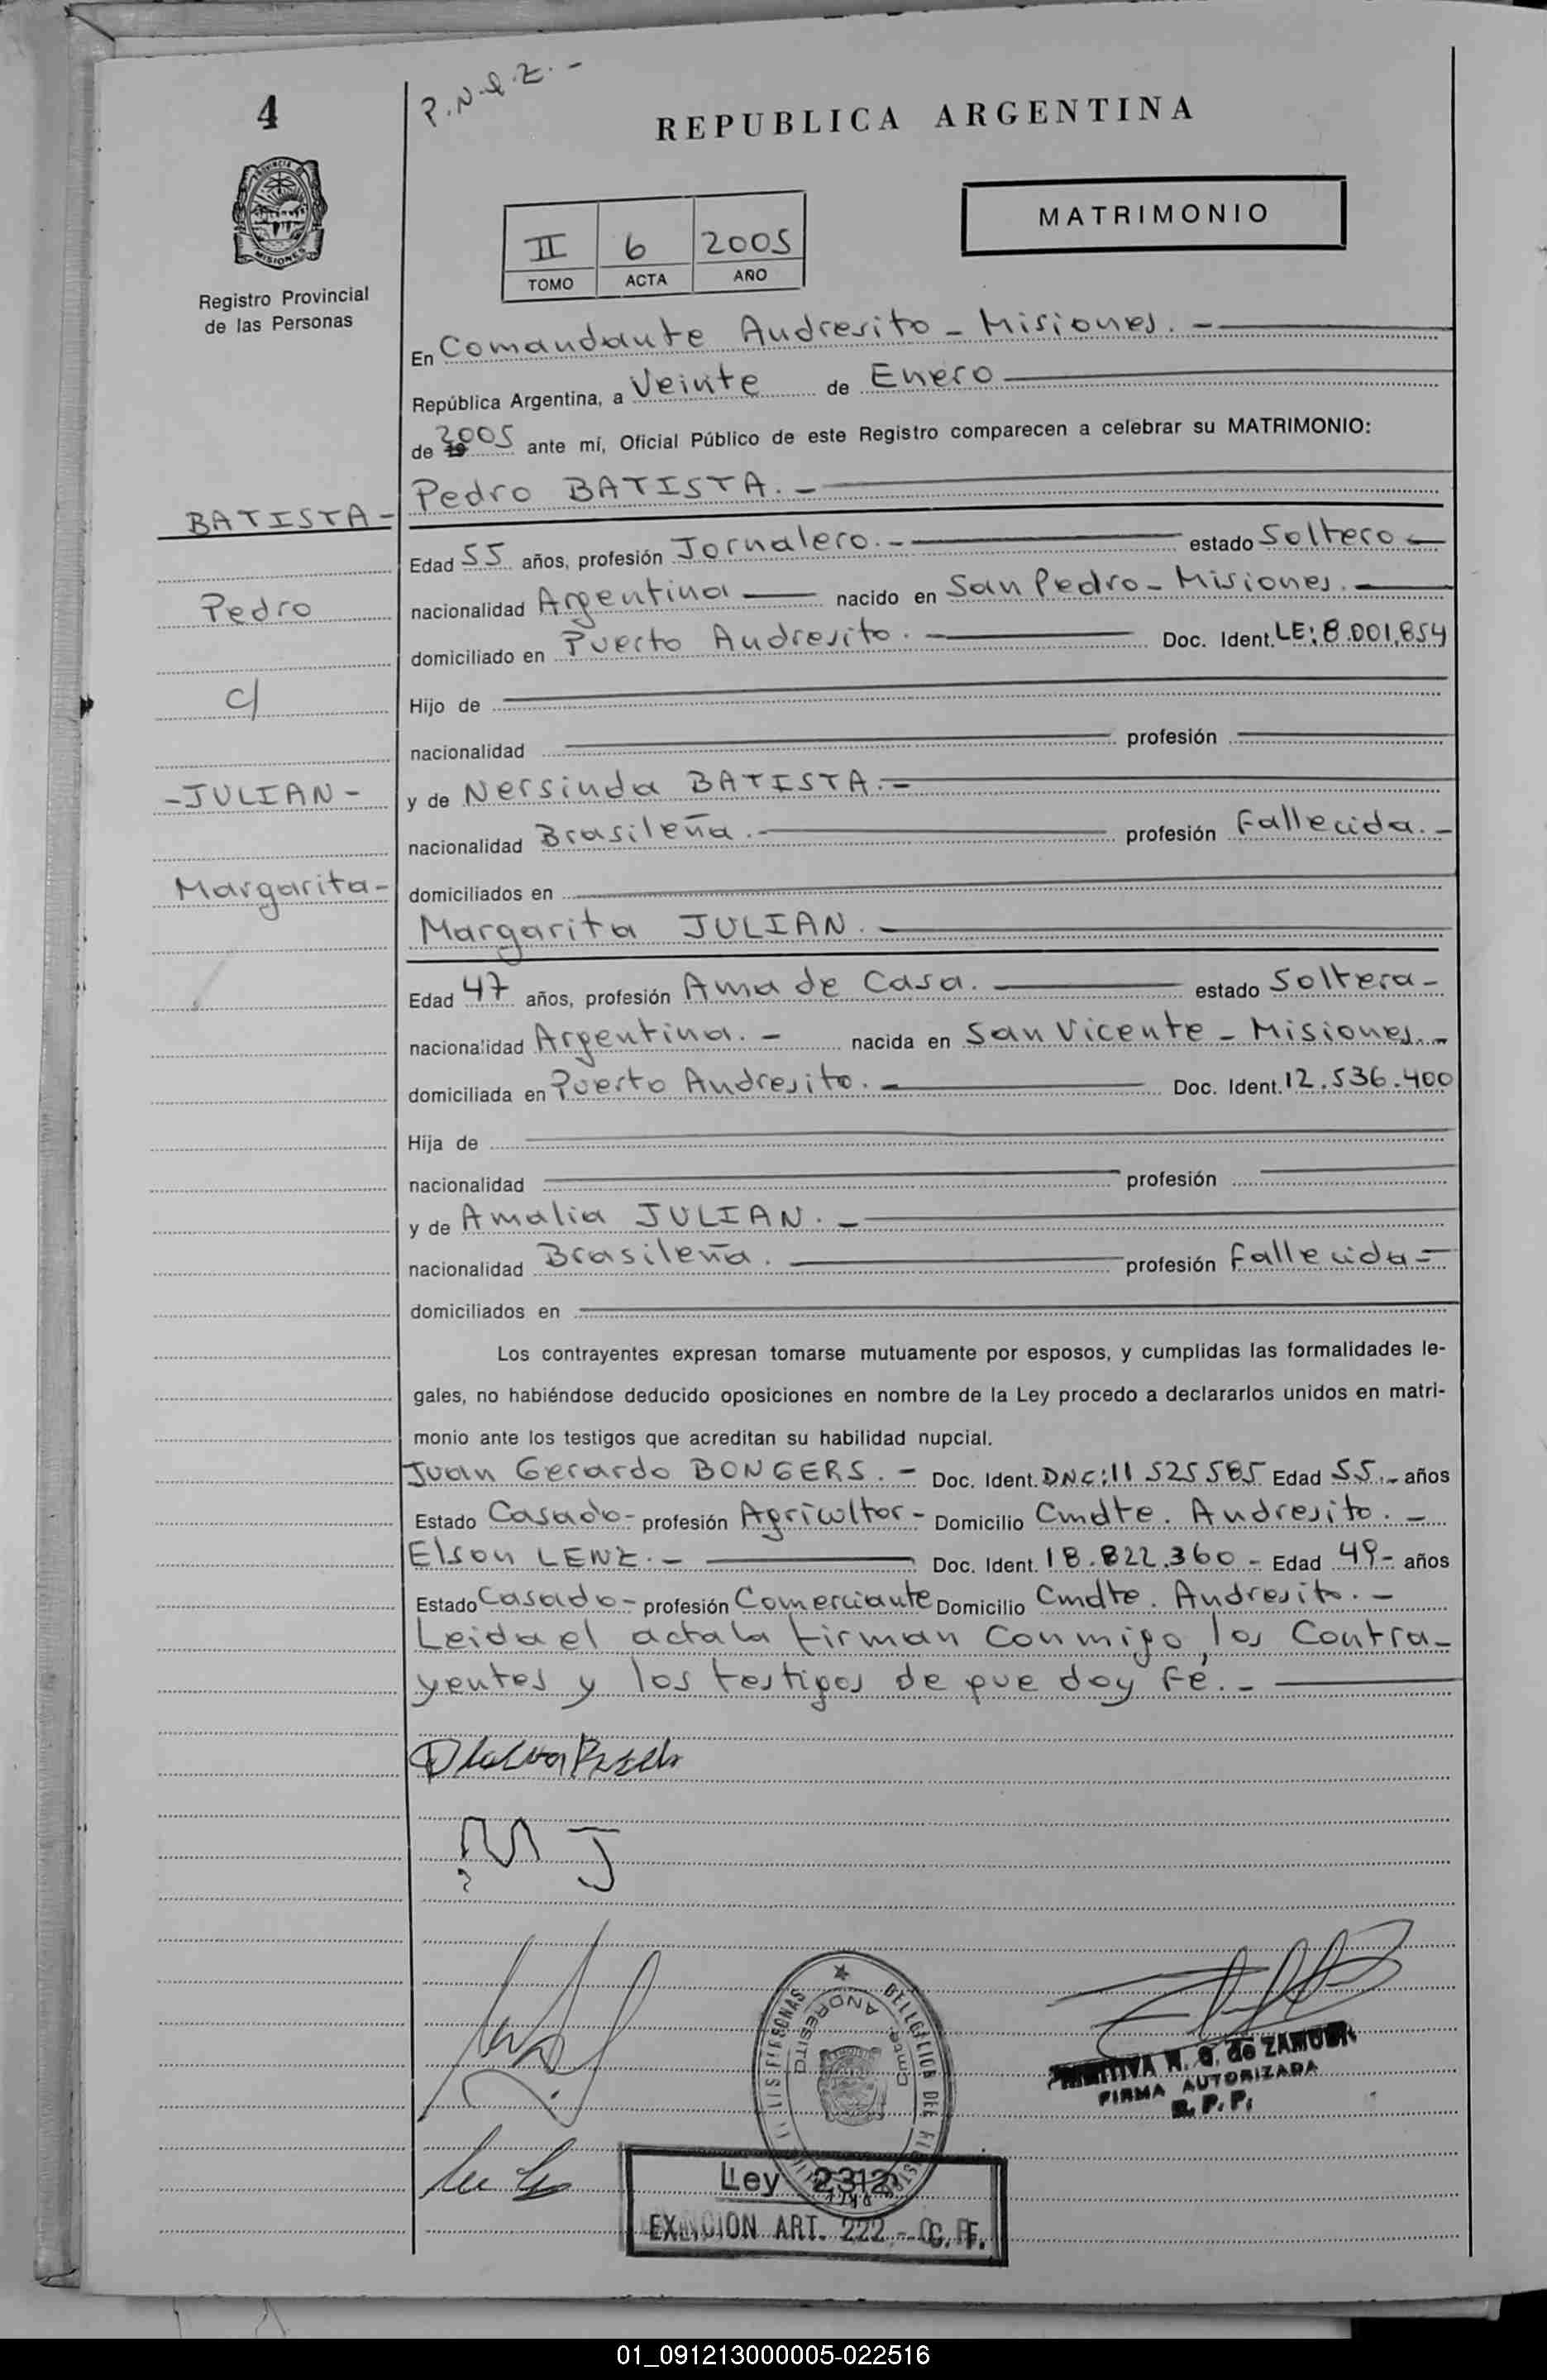 4
P.N.Z.-
REPUBLICA ARGENTINA
MATRIMONIO
II 6 2005
TOMO ACTA AÑO
PROVINCIA
MISIONES
Registro Provincial
de las Personas
En Comandante Andresito - Misiones. -
República Argentina, a Veinte de Enero
de 19 2005 ante mí, Oficial Público de este Registro comparecen a celebrar su MATRIMONIO:
BATISTA - Pedro BATISTA. -
Edad 55 años, profesión Jornalero. - estado Soltero -
Pedro nacionalidad Argentina nacido en San Pedro - Misiones. -
domiciliado en Puerto Andresito. - Doc. Ident. LE: 8.001.854
c/ Hijo de
nacionalidad profesión
- JULIAN - y de Nersinda BATISTA. -
nacionalidad Brasileña. - profesión Fallecida. -
Margarita - domiciliados en
Margarita JULIAN. -
Edad 47 años, profesión Ama de Casa. - estado Soltera -
nacionalidad Argentina. - nacida en San Vicente - Misiones. -
domiciliada en Puerto Andresito. - Doc. Ident. 12.536.400
Hija de
nacionalidad profesión
y de Amalia JULIAN. -
nacionalidad Brasileña. profesión Fallecida -
domiciliados en
Los contrayentes expresan tomarse mutuamente por esposos, y cumplidas las formalidades le-
gales, no habiéndose deducido oposiciones en nombre de la Ley procedo a declararlos unidos en matri-
monio ante los testigos que acreditan su habilidad nupcial.
Juan Gerardo BONGERS. - Doc. Ident. DNC: 11 525 585 Edad 55.- años
Estado Casado - profesión Agricultor - Domicilio Cmdte. Andresito. -
Elson LENZ. - Doc. Ident. 18.822.360 - Edad 49- años
Estado Casado - profesión Comerciante Domicilio Cmdte. Andresito. -
Leida el acta la firman conmigo, los Contra-
yentes y los testigos de que doy Fé. -
M J
ANDRESITO
Cmte.
N. G. de
FIRMA AUTORIZADA
R. P. P.
Ley 2312
EXENCION ART. 222 - C. F.
01_091213000005-022516